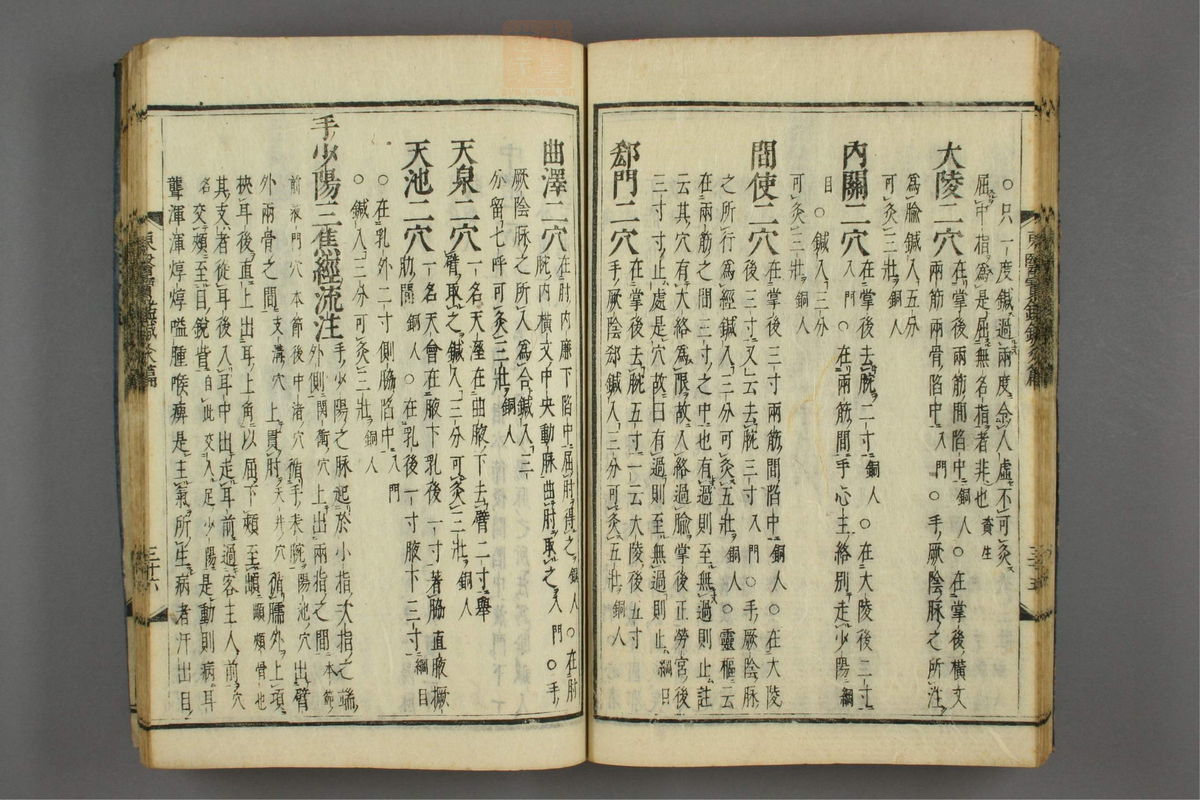 ○只一度鍼過兩度令人虛不可灸
屈中指爲是屈無名指者非也資生
大陵二穴在掌後兩筋間陷中銅人○在掌後橫文
兩筋兩骨陷中入門○手厥陰脉之所注
爲腧鍼入五分
可灸三壯銅人
內關二穴在掌後去腕二寸銅人○在大陵後二寸
入門○在兩筋間手心主絡別走少陽綱
目○鍼入三分
可灸三壯銅人
間使二穴在掌後三寸兩筋間陷中銅人○在大陵
後三寸又云去腕三寸入門○手厥陰脉
之所行爲經鍼入三分可灸五壯銅人○靈樞云
在兩筋之間三寸之中也有過則至無過則止註
云其穴有大絡爲限故入絡過腧掌後正勞宮後
三寸寸止處是穴故曰有過則至無過則止綱目
郄門二穴在掌後去腕五寸一云大陵後五寸
手厥陰郄鍼入三分可灸五壯銅人
曲澤二穴在肘內廉下陷中屈肘得之銅人○在肘
腕內橫文中央動脉曲肘取之入門○手
厥陰脉之所入爲合鍼入三
分留七呼可灸三壯銅人
天泉二穴一名天溼在曲腋下去臂二寸擧
臂取之鍼入三分可灸三壯銅人
天池二穴一名天會在腋下乳後一寸著脇直腋撅
肋間銅人○在乳後一寸腋下三寸綱目
○在乳外二寸側脇陷中入門
○鍼入三分可灸三壯銅人
手少陽三焦經流注手少陽之脉起於小指次指之端
外側關衝穴上出兩指之間本節
前液門穴本節後中渚穴循手表腕陽池穴出臂
外兩骨之間支溝穴上貫肘天井穴循臑外上項
挾耳後直上出耳上角以屈下頰至䪼䪼頰骨也
其支者從耳後入耳中出走耳前過客主人前穴
名交頰至目銳眥自此交入足少陽是動則病耳
聾渾渾焞焞嗌腫喉痺是主氣所生病者汗出目
東醫寶鑑鍼灸篇
三十五
東醫寶鑑鍼灸篇
三十六